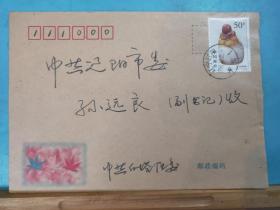 111000
50分
中共辽阳市委
孙远良（副书记）收
中共白塔区委
邮政编码